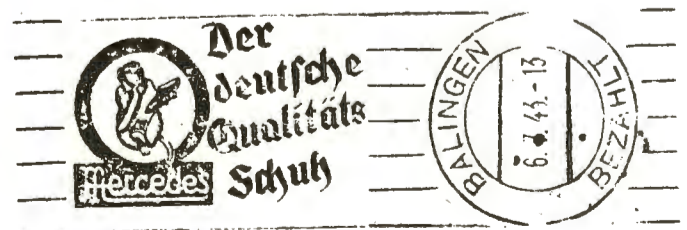 Der
deutsche
Qualitäts
Schuh
Mercedes
BALINGEN
6.7.43.-13
BEZAHLT